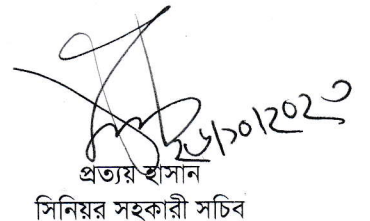 ২৬/১০/২০২৩
প্রত্যয় হাসান
সিনিয়র সহকারী সচিব